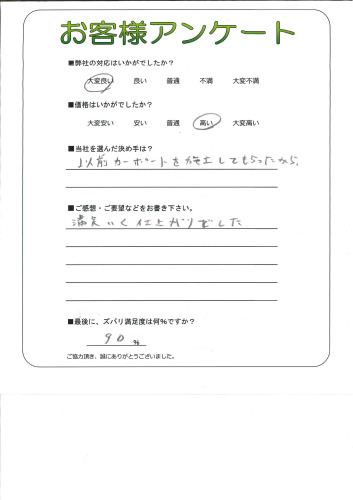 お客様アンケート
■弊社の対応はいかがでしたか?
大変良い 良い 普通 不満 大変不満
■価格はいかがでしたか?
大変安い 安い 普通 高い 大変高い
■当社を選んだ決め手は?
以前カーポートを施工してもらったから。
■ご感想・ご要望などをお書き下さい。
満足いく仕上がりでした
■最後に、ズバリ満足度は何%ですか?
90 %
ご協力頂き、誠にありがとうございました。